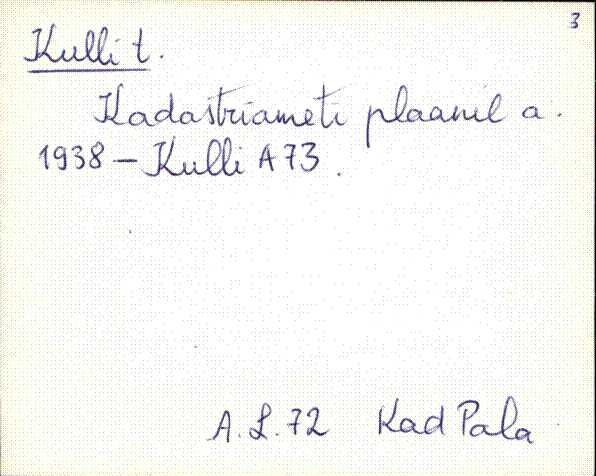 3
Kulli t.
Kadastriameti plaanil a.
1938 – Kulli A73.
A.L.72 Kad Pala